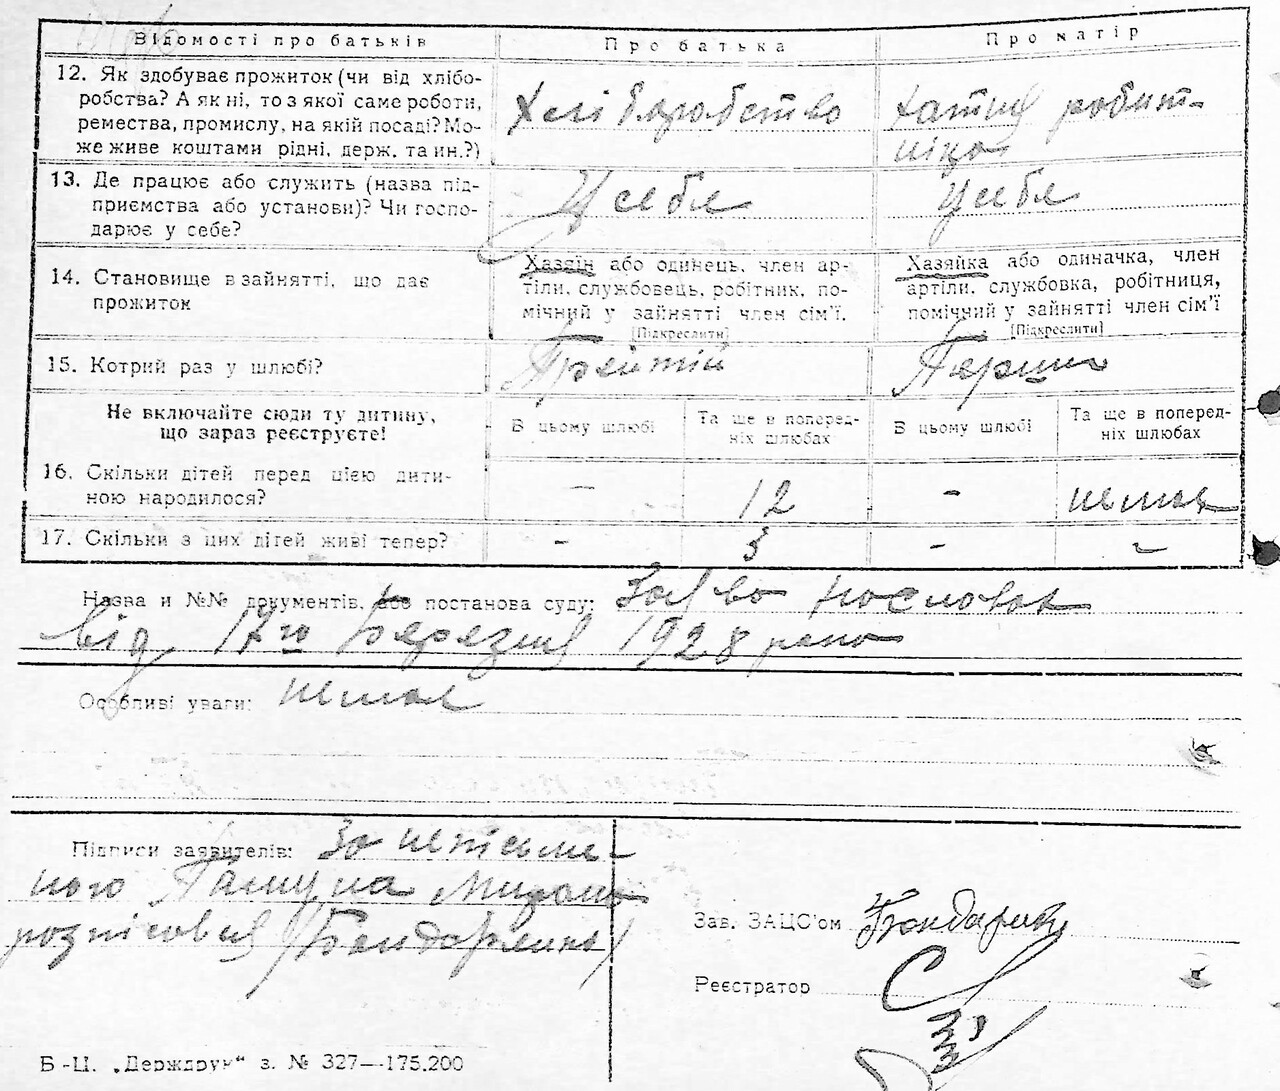 Відомості про батьків
Про батька
Про матір
12. Як здобуває прожиток (чи від хлібо-
робства? А як ні, то з якої саме роботи,
ремества, промислу, на якій посаді? Мо-
же живе коштами рідні, держ. та ин.?)
Хліборобство
хатня робит-
ниця
13. Де працює або служить (назва під-
приємства або установи)? Чи госпо-
дарює у себе?
У себе
У себе
14. Становище в зайнятті, що дає
прожиток
Хазяїн або одинець, член ар-
тілі, службовець, робітник, по-
мічний у зайнятті член сім'ї.
[Підкреслити]
Хазяйка або одиначка, член
артілі, службовка, робітниця,
помічний у зайнятті член сім'ї
[Підкреслити]
15. Котрий раз у шлюбі?
Третій
Перший
Не включайте сюди ту дитину,
що зараз реєструєте!
В цьому шлюбі
Та ще в поперед-
ніх шлюбах
В цьому шлюбі
Та ще в поперед-
ніх шлюбах
16. Скільки дітей перед цією дити-
ною народилося?
– 12 – немає
17. Скільки з цих дітей живі тепер?
– 3 – –
Назва и №№ документів, або постанова суду:
від 17го Березня 1928 року
Особливі уваги: немає
Підписи заявителів: За неписьме-
ного Мирона
розписався (Бондаренко)
Зав. ЗАЦС'ом Бондаренко
Реєстратор
Б-Ц. „Держдрук“ з. № 327—175.200